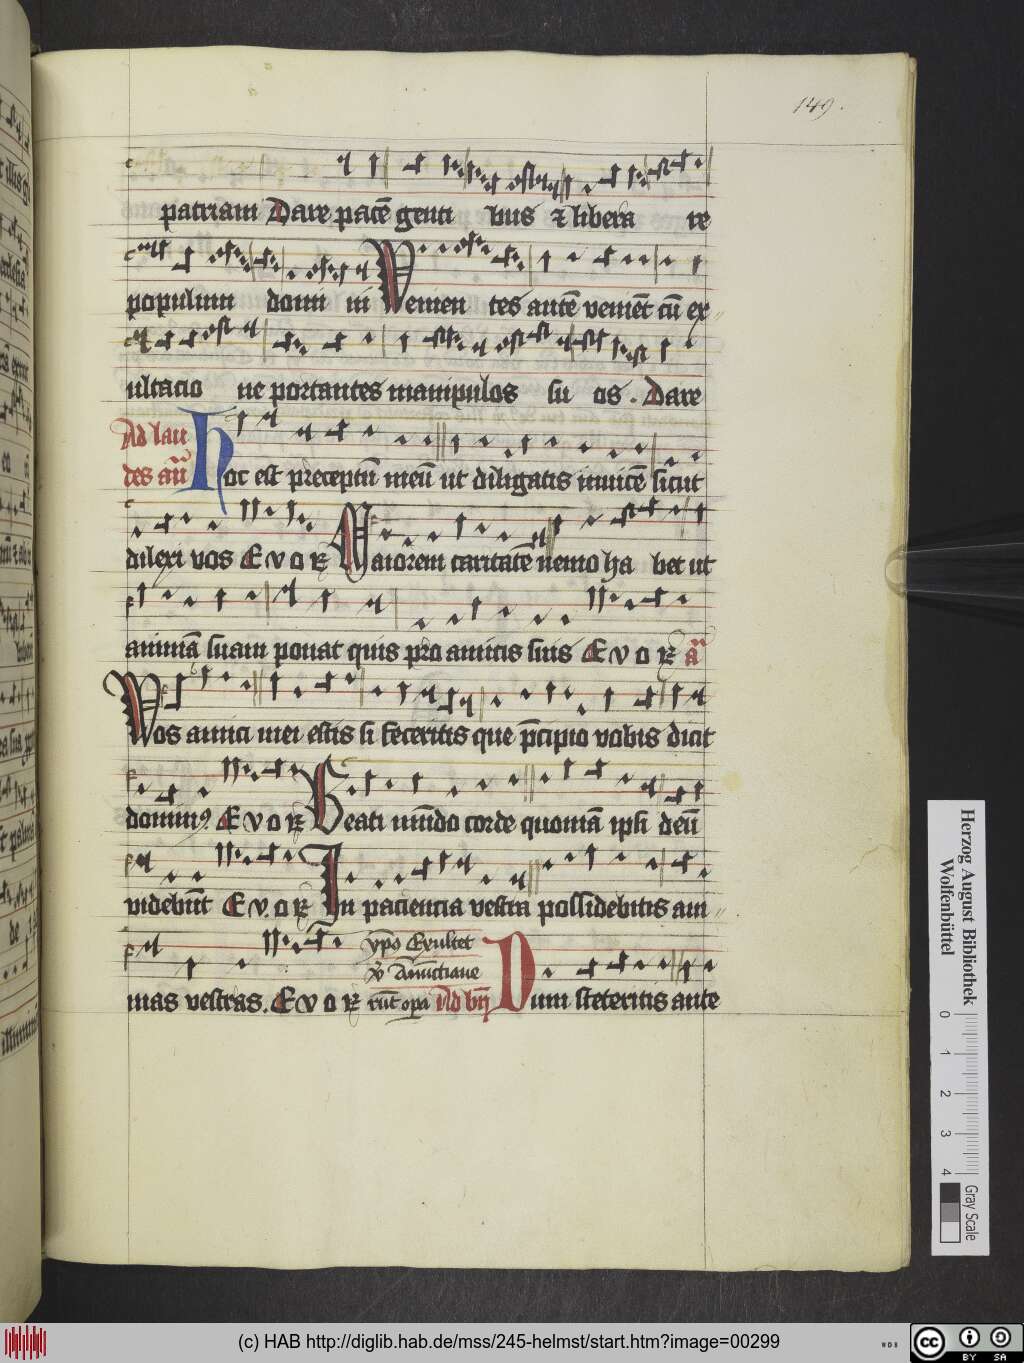 149.
patriam Dare pacē genti bus & libera re
populum domi ni Venien tes autē veniēt cū ex
ultacio ne portantes manipulos su os . Dare
Ad lau
des an̄ Hoc est preceptū meū ut diligatis invicē sicut
dilexi vos E v o R Maiorem caritatē nemo ha bet ut
animā suam ponat quis pro amicis suis E v o R a᷈
Vos amici mei estis si feceritis que p̄cipio vobis dicit
dominꝰ E v o R Beati mūdo corde quoniā ipsi deū
videbūt E v o R In paciencia vestra possidebitis ani
ymō Exultet
mas vestras. E v o R Ad bn̄ Dum steteritis ante
Herzog August Bibliothek
Wolfenbüttel
0 1 2 3 4
Gray Scale
(c) HAB http://diglib.hab.de/mss/245-helmst/start.htm?image=00299
WDB
cc BY SA